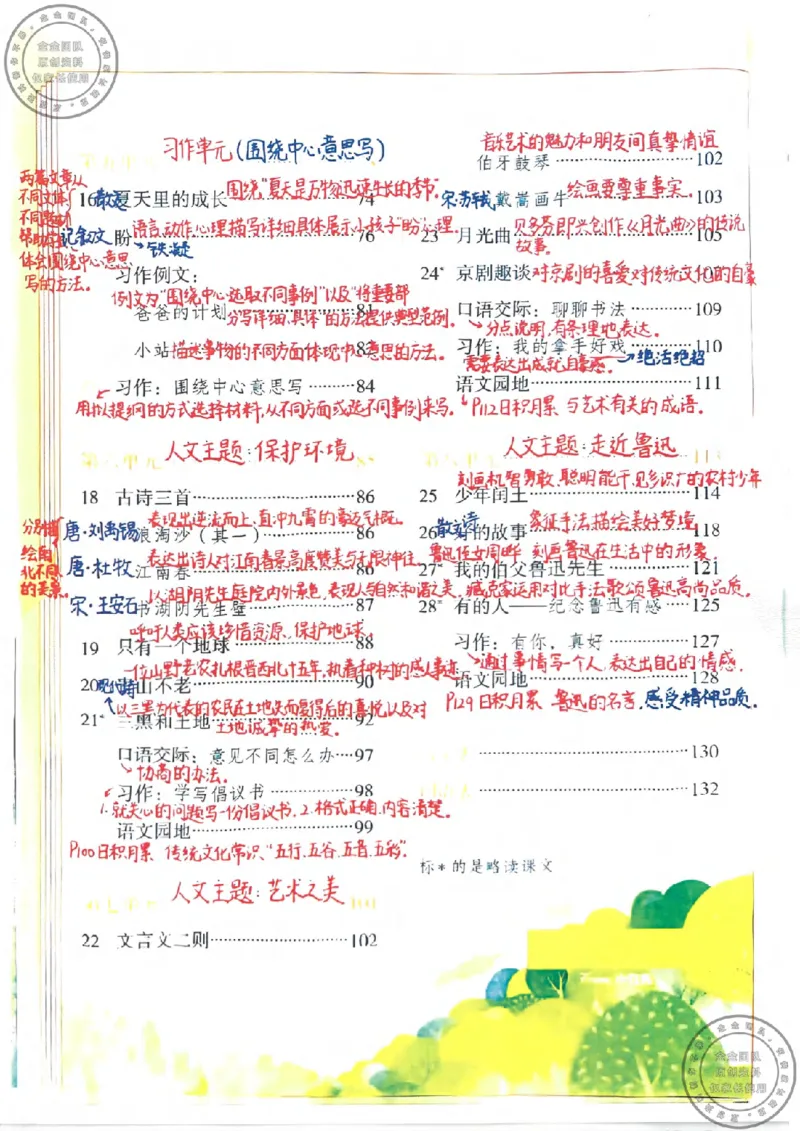 习作单元(围绕中心意思写)
两篇文章从
不同文体
不同
帮助
体会围绕中心意思
写的方法。
16 散文 夏天里的成长 74
围绕"夏天是万物迅速生长的季节"
记叙文 盼 76
语言动作心理描写详细具体展示小孩子"盼"心理.
铁凝
习作例文:
例文为"围绕中心选取不同事例"以及"将重要部
爸爸的计划 81
分写详细、具体"的方法提供典型范例.
小站
描述事物的不同方面体现中心意思的方法.
习作:围绕中心意思写 84
用拟提纲的方式选择材料,从不同方面或选不同事例来写.
人文主题:保护环境
18 古诗三首 86
分别描
绘
北不同
的美景.
唐·刘禹锡 浪淘沙(其一) 86
表现出逆流而上,直冲九霄的豪迈气概.
唐·杜牧 江南春 86
表达出诗人对江南春景高度赞美与无限神往.
宋·王安石 书湖阴先生壁 87
以湖阴先生庭院内外景色,表现人与自然和谐之美.
呼吁人类应该珍惜资源、保护地球
19 只有一个地球 88
一位山野老农扎根晋西北十五年,执着种树的感人事迹
20 现代诗 青山不老 90
以三黑为代表的农民在土地失而复得后的喜悦以及对
21* 三黑和土地 92
土地诚挚的热爱.
口语交际:意见不同怎么办 97
协商的办法.
习作:学写倡议书 98
1.就关心的问题写一份倡议书.2.格式正确,内容清楚.
语文园地 99
P100日积月累 传统文化常识、"五行.五谷.五音.五彩".
人文主题:艺术之美
22 文言文二则 102
音乐艺术的魅力和朋友间真挚情谊
伯牙鼓琴 102
宋·苏轼 戴嵩画牛 103
绘画要尊重事实.
23 月光曲 105
贝多芬即兴创作《月光曲》的传说
故事.
24* 京剧趣谈
对京剧的喜爱对传统文化的自豪
口语交际:聊聊书法 109
分点说明,有条理地表达.
习作:我的拿手好戏 110
绝活绝招
需要表达出成就自豪感.
语文园地 111
P112日积月累 与艺术有关的成语.
人文主题:走近鲁迅
刻画机智勇敢、聪明能干,见多识广的农村少年
25 少年闰土 114
26* 散文诗 好的故事 118
象征手法,描绘美好梦境
鲁迅侄女周晔 刻画鲁迅在生活中的形象.
27* 我的伯父鲁迅先生 121
臧克家运用对比手法歌颂鲁迅高尚品质.
28* 有的人——纪念鲁迅有感 125
习作:有你,真好 127
通过事情写一个人,表达出自己的情感.
语文园地 128
P129日积月累 鲁迅的名言,感受精神品质.
130
132
标*的是略读课文